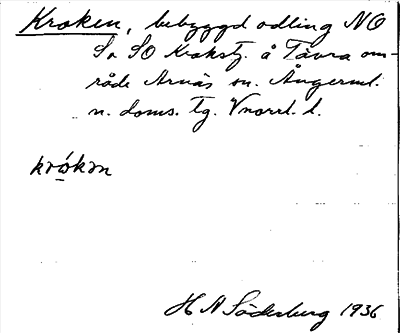 Kroken, bebyggd odling NO
S. SO Krokstj. å Tävra om-
råde Arnäs sn. Ångerml.
n. doms. tg. Vnorrl. l.
krókən
H N Söderberg 1936